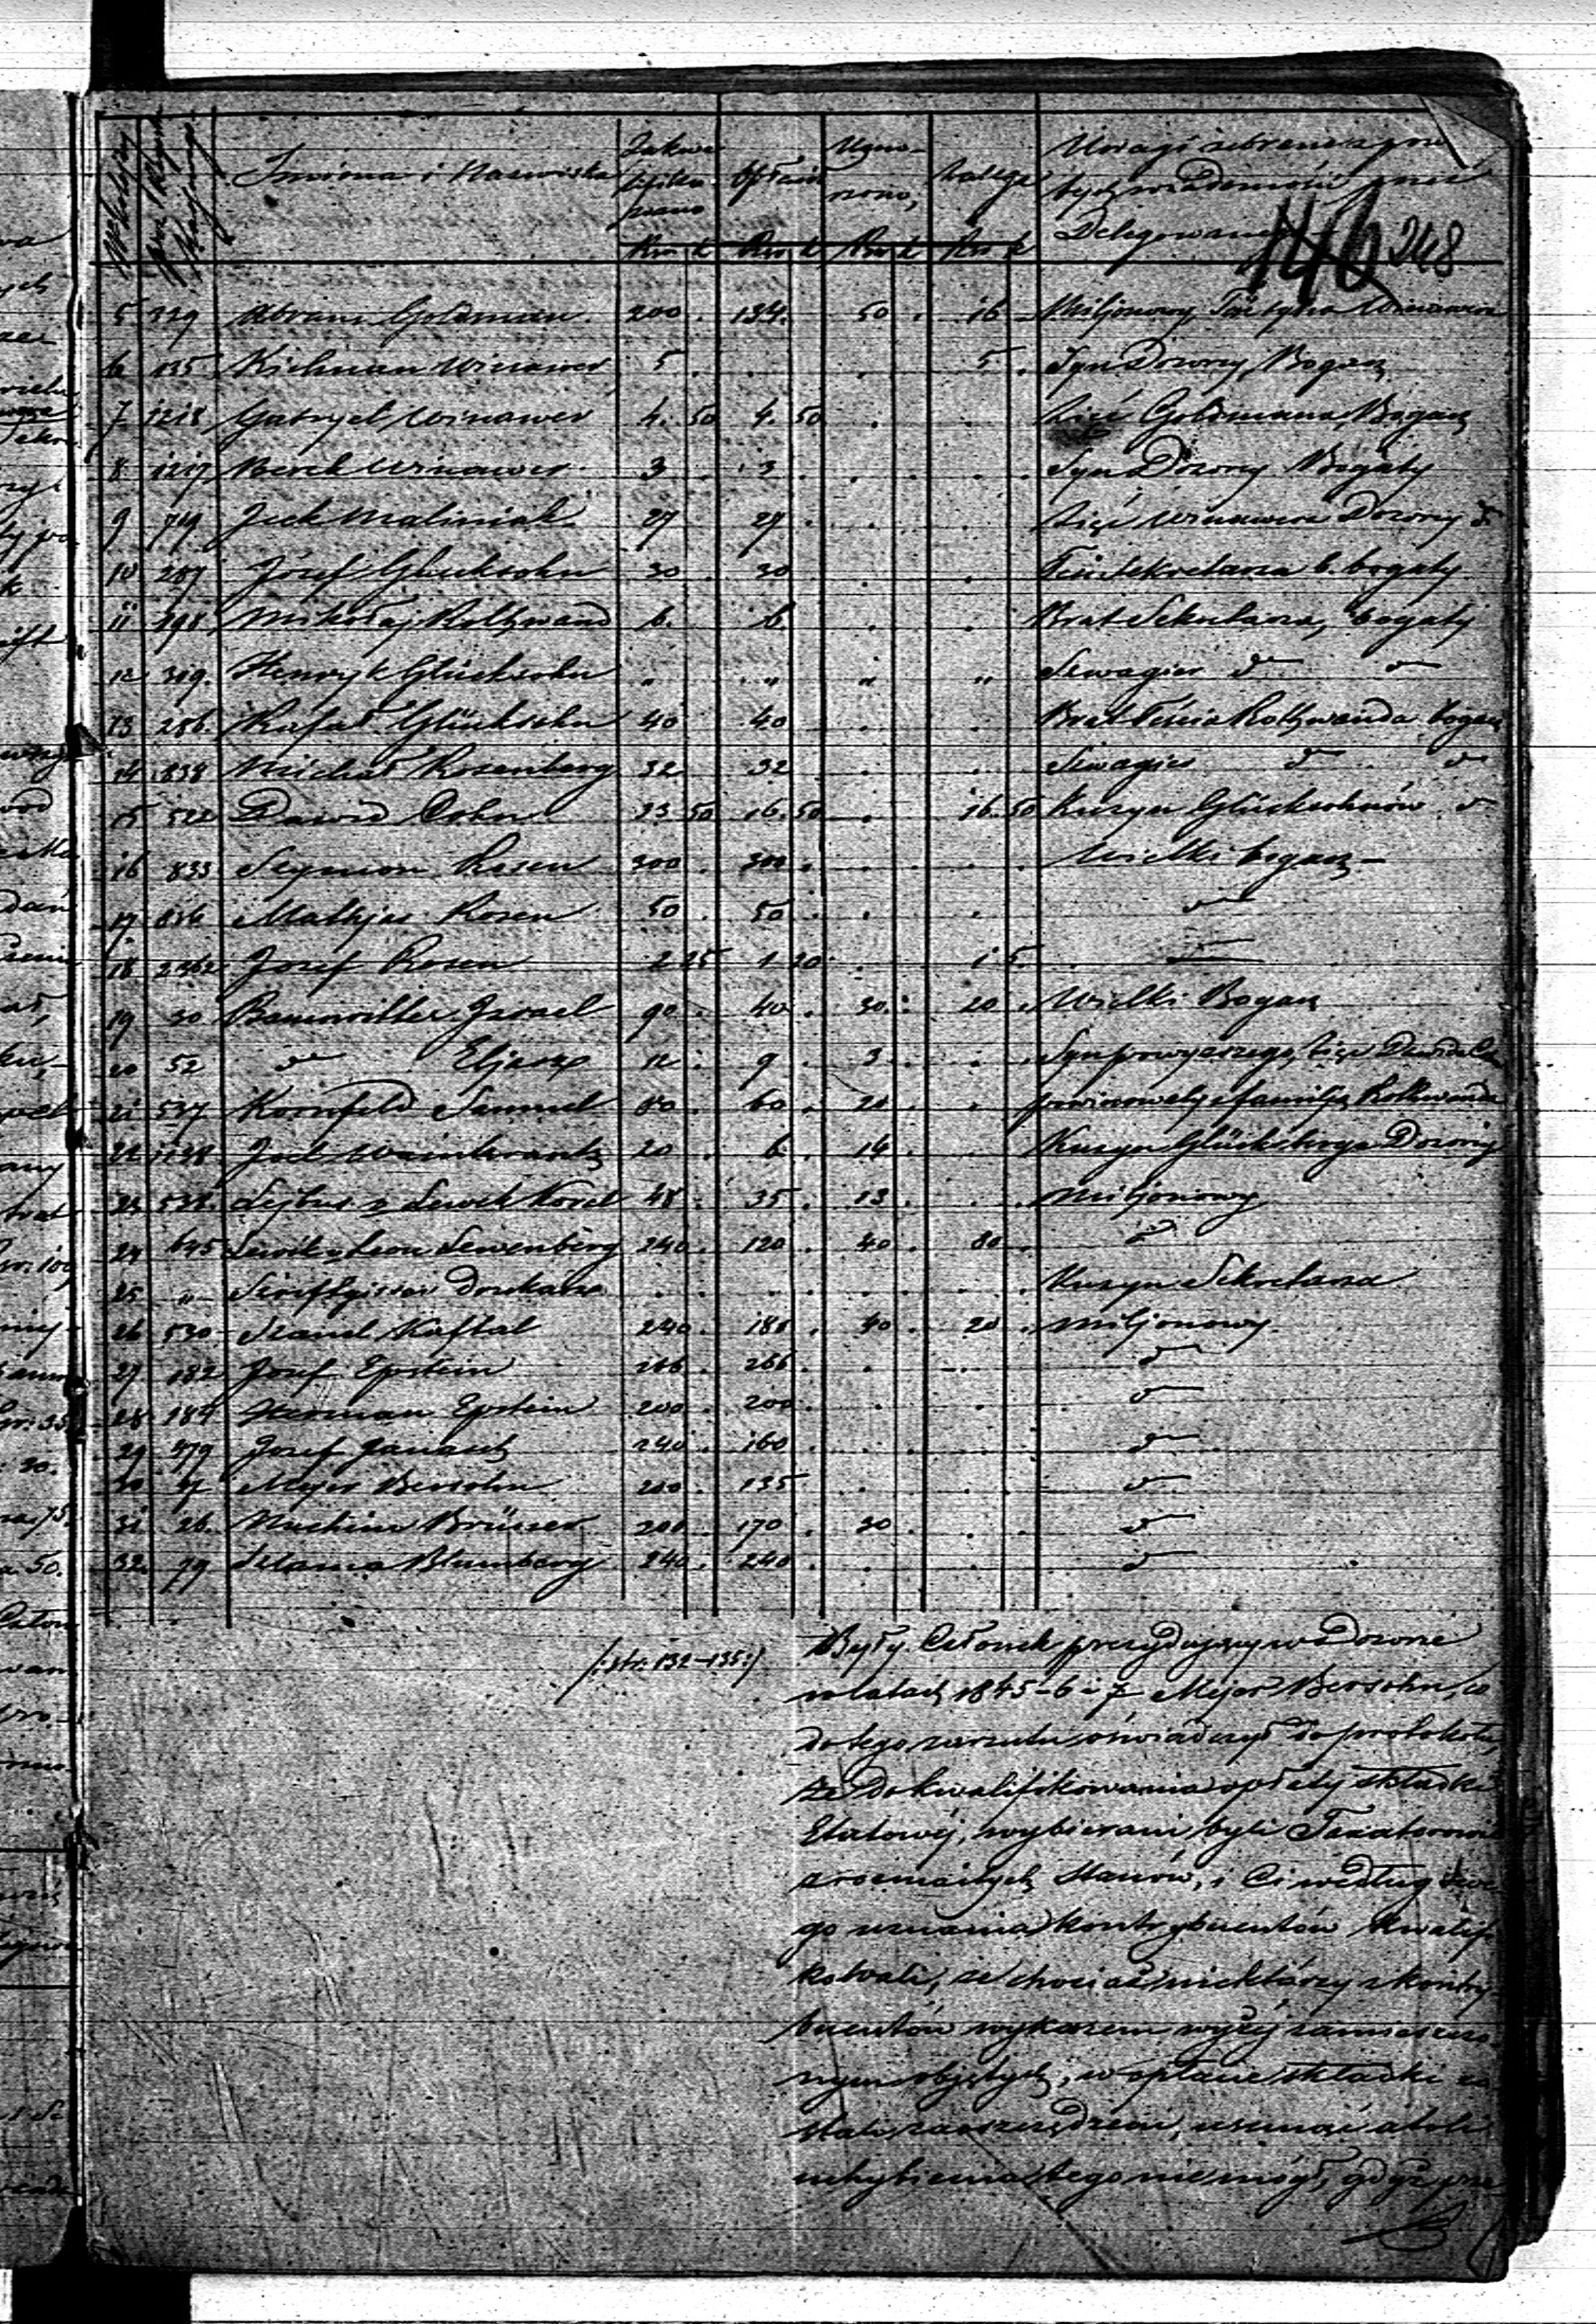 Imiona i Nazwiska
Uwagi zebrane z pow
Delegowane
146 248
Rsr k Rsr k Rsr k Rsr k
5 329 Abram Goldman 200 . 134 . 50 . 16 Miljonowy, Teść syna Winawera
6 135 Kichman Winawer 5 . 5 . Syn Dozorcy, Bogacz
7 1218 Gabryel Winawer 4. 50 4. 50 . . Zięć Goldmana, Bogacz
8 1217 Berek Winawer 3 . 3 . . . Syn Dozorcy Bogaty
9 719 Jcek Maliniak 29 29 . . . Zięć Winawera Dozorcy d
10 287 Józef Glucksohn 30 . 30 . . Teść Sekretarza b. bogaty
11 298 Mikołaj Rothwand 6. 6. . . Brat Sekretarza, bogaty
12 319. Henryk Glücksohn " " " " Szwagier d d
13 286. Rafał Glücksohn 40 40 . . Brat Teścia Rothwanda bogacz
14 838 Michał Rosenberg 32 32 . . Szwagier d d
15 522 Dawid Cohn 33 50 16. 50 . 16. 50 Kuzyn Glücksohnów d
16 833 Szymon Rosen 300 . 300 . . . Wielki bogacz –
17 836 Mathjas Rosen 50 . 50 . . . d
18 2362 Jozef Rosen 2 25 1 20 . 1 5. —
19 30 Baumritter Jzrael 90 . 40 . 30 . 20 . Wielki Bogacz
20 52 d Eljasz 12 . 9 . 3 . . Syn powyższego, zięć Dawida
21 537 Kornfeld Samuel 80 . 60 . 20 . . familją Rothwanda
22 1138 Jcek Wainkrantz 20 . 6 . 14 . Kuzyn Dozorcy
23 538. Lejbus z Lewek Korel 48 . 35 . 13 . . Miljonowy
24 645 Lewek z Leon Lewenberg 240 . 120 . 40 . 80 . d
25 " Drukarz . . . . Kuzyn Sekretarza
26 530 Szanel Kaftal 240 . 180 . 40 . 20 . Miljonowy.
27 182 Jozef Epstein 266 . 266 . . d
28 184 Herman Epstein 200 . 200 . . . d
29 479 Jozef Janasch 240 . 160 . . . d
30 4 Mejer Bersohn 200 . 135 . . d
31 26. Nuchim Brüner 200 . 170 . 30 . . d
32. 79 Szlama Blumberg 240 . 240 . d
/: str: 132–135:/
Były Członek prezydujący w Dozorze
w latach 1845–6 i 7 Mejer Bersohn, co
do tego zarzutu oświadczył do protokołu,
że do kwalifikowania opłaty składki
Etatowéj, wybierani byli Taxatorowie
z rozmaitych Stanów, i Ci według swe
go uznania kontrybuentów kwalifi
kowali, że chociaż niektórzy z kontry
buentów wykazem wyżéj zamieszczo
nym objętych, w opłacie składki zo
stali zaoszczędzeni, usunąć atoli
uchybienia tego nie mógł, gdyż prze